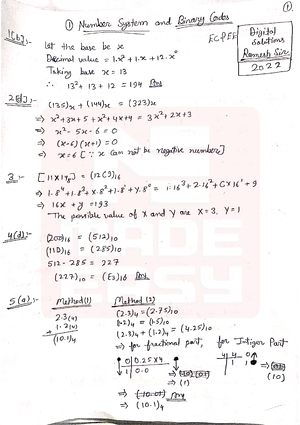 ①
① Number System and Binary Codes
ECPEE
Digital
Solutions
Ramesh Sir
2022
1(b):-
let the base be x
Decimal value = 1.x² + 1.x + 12.x⁰
Taking base x = 13
∴ 13² + 13 + 12 = 194 Ans
2(d):-
(135)x + (144)x = (323)x
⇒ x² + 3x + 5 + x² + 4x + 4 = 3x² + 2x + 3
⇒ x² - 5x - 6 = 0
⇒ (x-6)(x+1) = 0
⇒ x = 6 [∵ x can not be negative number]
3.-
[11X1Y]₈ = (12C9)₁₆
⇒ 1.8⁴ + 1.8³ + X.8² + 1.8¹ + Y.8⁰ = 1.16³ + 2.16² + C×16¹ + 9
⇒ 16x + y = 193
The possible value of X and Y are X = 3, Y = 1
4(d):-
(200)₁₆ = (512)₁₀
(11D)₁₆ = (285)₁₀
512 - 285 = 227
(227)₁₀ = (E3)₁₆ Ans
5(a):-
Method(1)
2.3(4)
1.2(4)
(10.1)₄
Method (2)
(2.3)₄ = (2.75)₁₀
(1.2)₄ = (1.5)₁₀
(2.3)₄ + (1.2)₄ = (4.25)₁₀
⇒ for fractional part, for Intiger Part
0 0.25×4
1 0.0
⇒ (1)
4 4 0
1 1
(10)
⇒ (10.1)₄
Ans
MADE
EASY